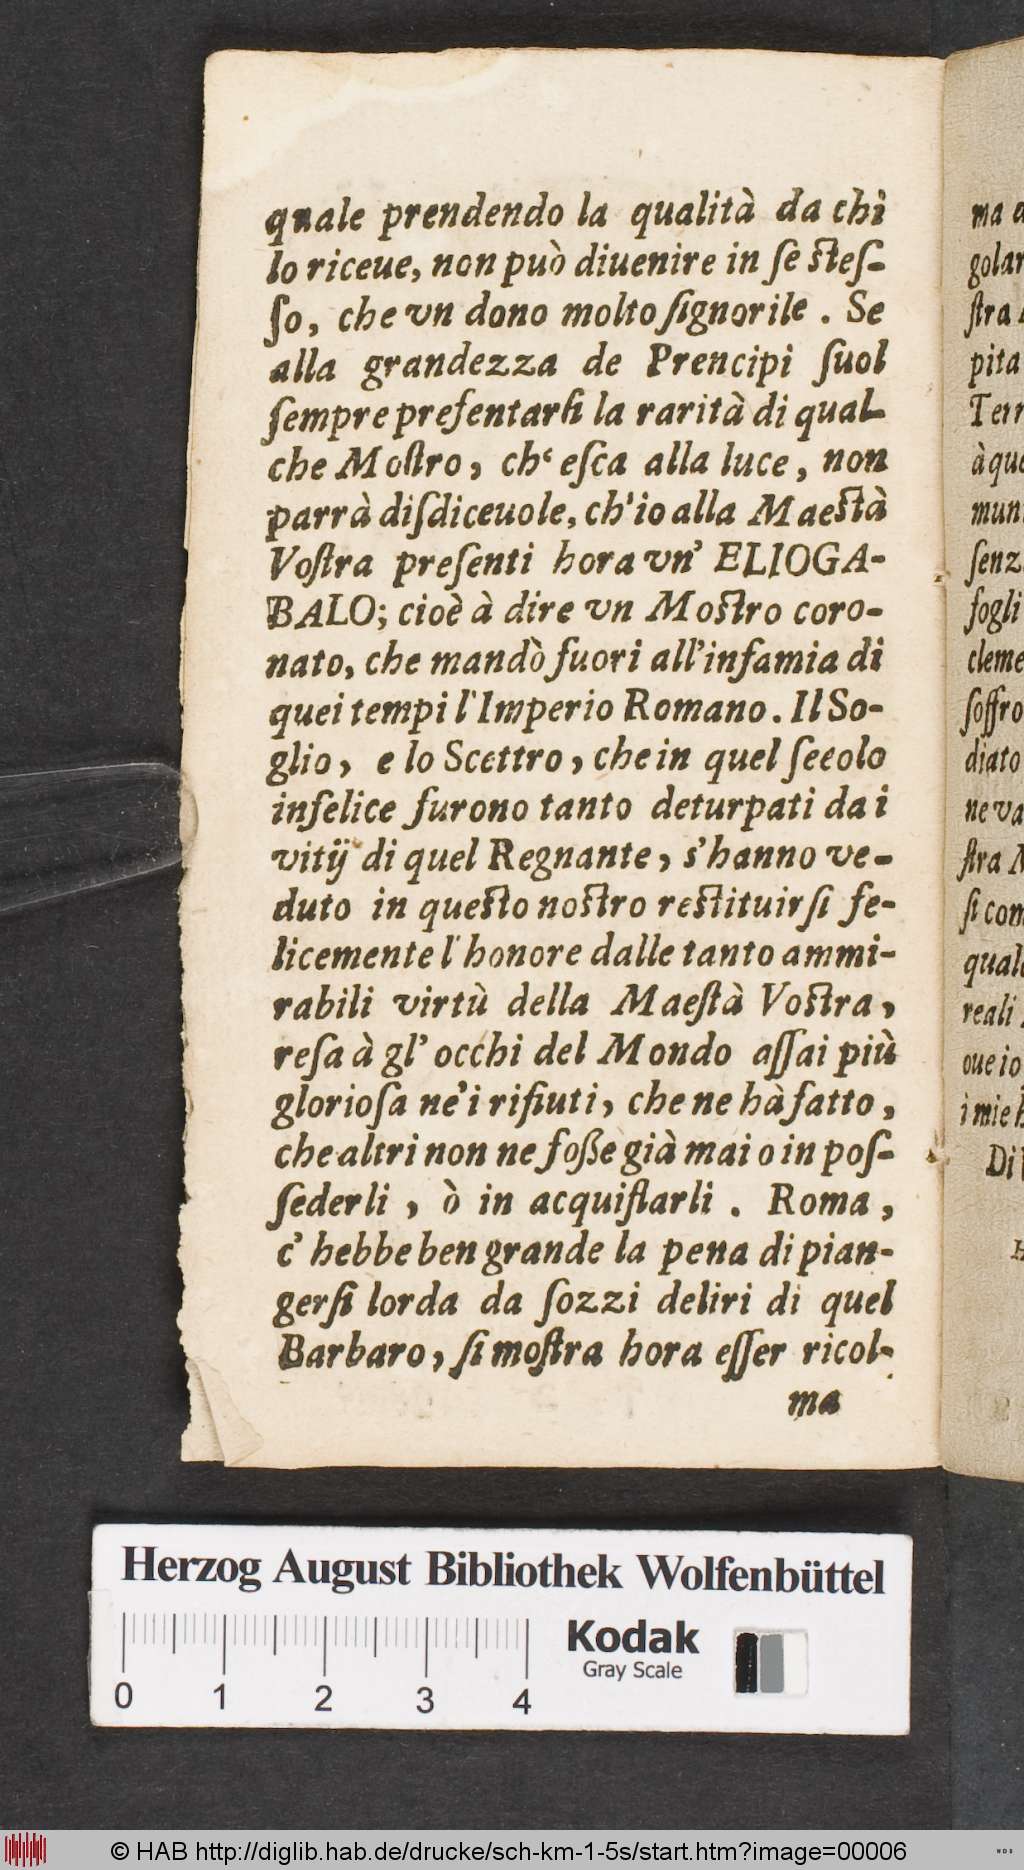 quale prendendo la qualità da chi
lo riceue, non può diuenire in ſe ſteſ-
ſo, che vn dono molto ſignorile. Se
alla grandezza de Prencipi ſuol
ſempre preſentarſi la rarità di qual-
che Moſtro, ch' eſca alla luce, non
parrà diſdiceuole, ch'io alla Maeſtà
Voſtra preſenti hora vn' ELIOGA-
BALO; cioè à dire vn Moſtro coro-
nato, che mandò fuori all'infamia di
quei tempi l'Imperio Romano. Il So-
glio, e lo Scettro, che in quel ſeeolo
infelice furono tanto deturpati da i
vitij di quel Regnante, s'hanno ve-
duto in queſto noſtro reſtituirſi fe-
licemente l'honore dalle tanto ammi-
rabili virtù della Maeſtà Voſtra,
reſa à gl' occhi del Mondo aſſai più
glorioſa ne'i rifiuti, che ne hà fatto,
che altri non ne foße già mai o in poſ-
ſederli, ò in acquiſtarli. Roma,
c' hebbe ben grande la pena di pian-
gerſi lorda da ſozzi deliri di quel
Barbaro, ſi moſtra hora eſſer ricol-
ma
ma
golar
ſtra
pita
Terr
à que
mun
ſenz
fogli
cleme
ſoffro
diato
ne va
ſtra
ſi com
quale
reali
oue io
i mie
Di
Herzog August Bibliothek Wolfenbüttel
0 1 2 3 4
Kodak
Gray Scale
© HAB http://diglib.hab.de/drucke/sch-km-1-5s/start.htm?image=00006